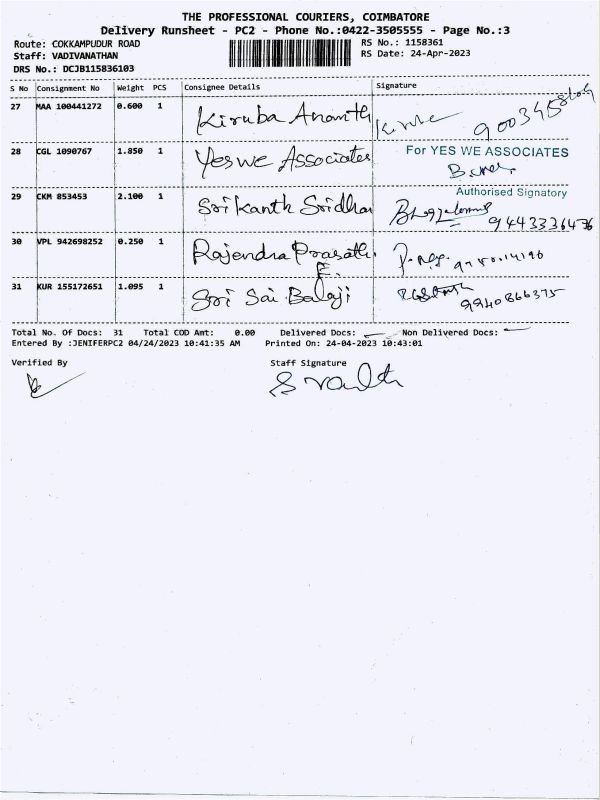 THE PROFESSIONAL COURIERS, COIMBATORE
Delivery Runsheet - PC2 - Phone No.:0422-3505555 - Page No.:3
Route: COKKAMPUDUR ROAD RS No.: 1158361
Staff: VADIVANATHAN RS Date: 24-Apr-2023
DRS No.: DCJB115836103
S No Consignment No Weight PCS Consignee Details Signature
27 MAA 100441272 0.600 1 Kiruba Ananth
28 CGL 1090767 1.850 1 Yes we Associates For YES WE ASSOCIATES
Authorised Signatory
29 CKM 853453 2.100 1 Sri Kanth Sridhar 9443336436
30 VPL 942698252 0.250 1 Rajendra Prasath
E.
31 KUR 155172651 1.095 1 Sri Sai Balaji 9940866375
Total No. Of Docs: 31 Total COD Amt: 0.00 Delivered Docs: Non Delivered Docs:
Entered By :JENIFERPC2 04/24/2023 10:41:35 AM Printed On: 24-04-2023 10:43:01
Verified By Staff Signature